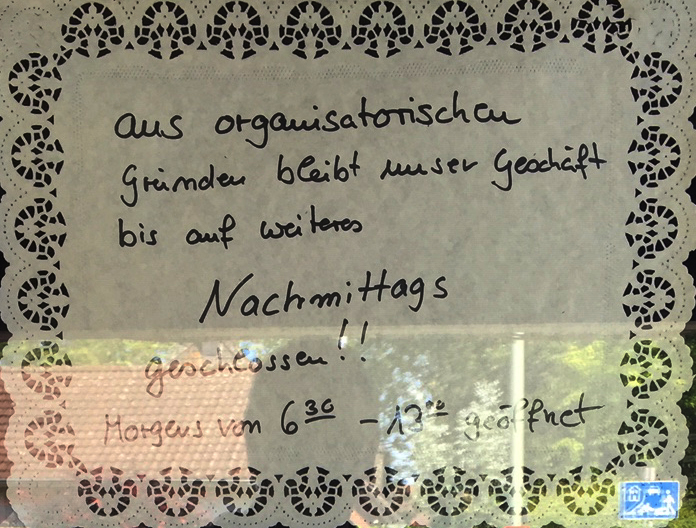 aus organisatorischen
Gründen bleibt unser Geschäft
bis auf weiteres
Nachmittags
geschlossen!!
Morgens von 6³⁰ - 13⁰⁰ geöffnet